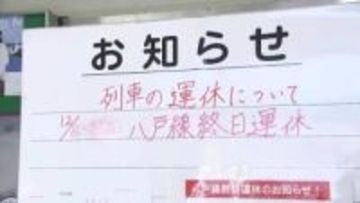 お知らせ
列車の運休について
12/ 八戸線終日運休
運休のお知らせ！